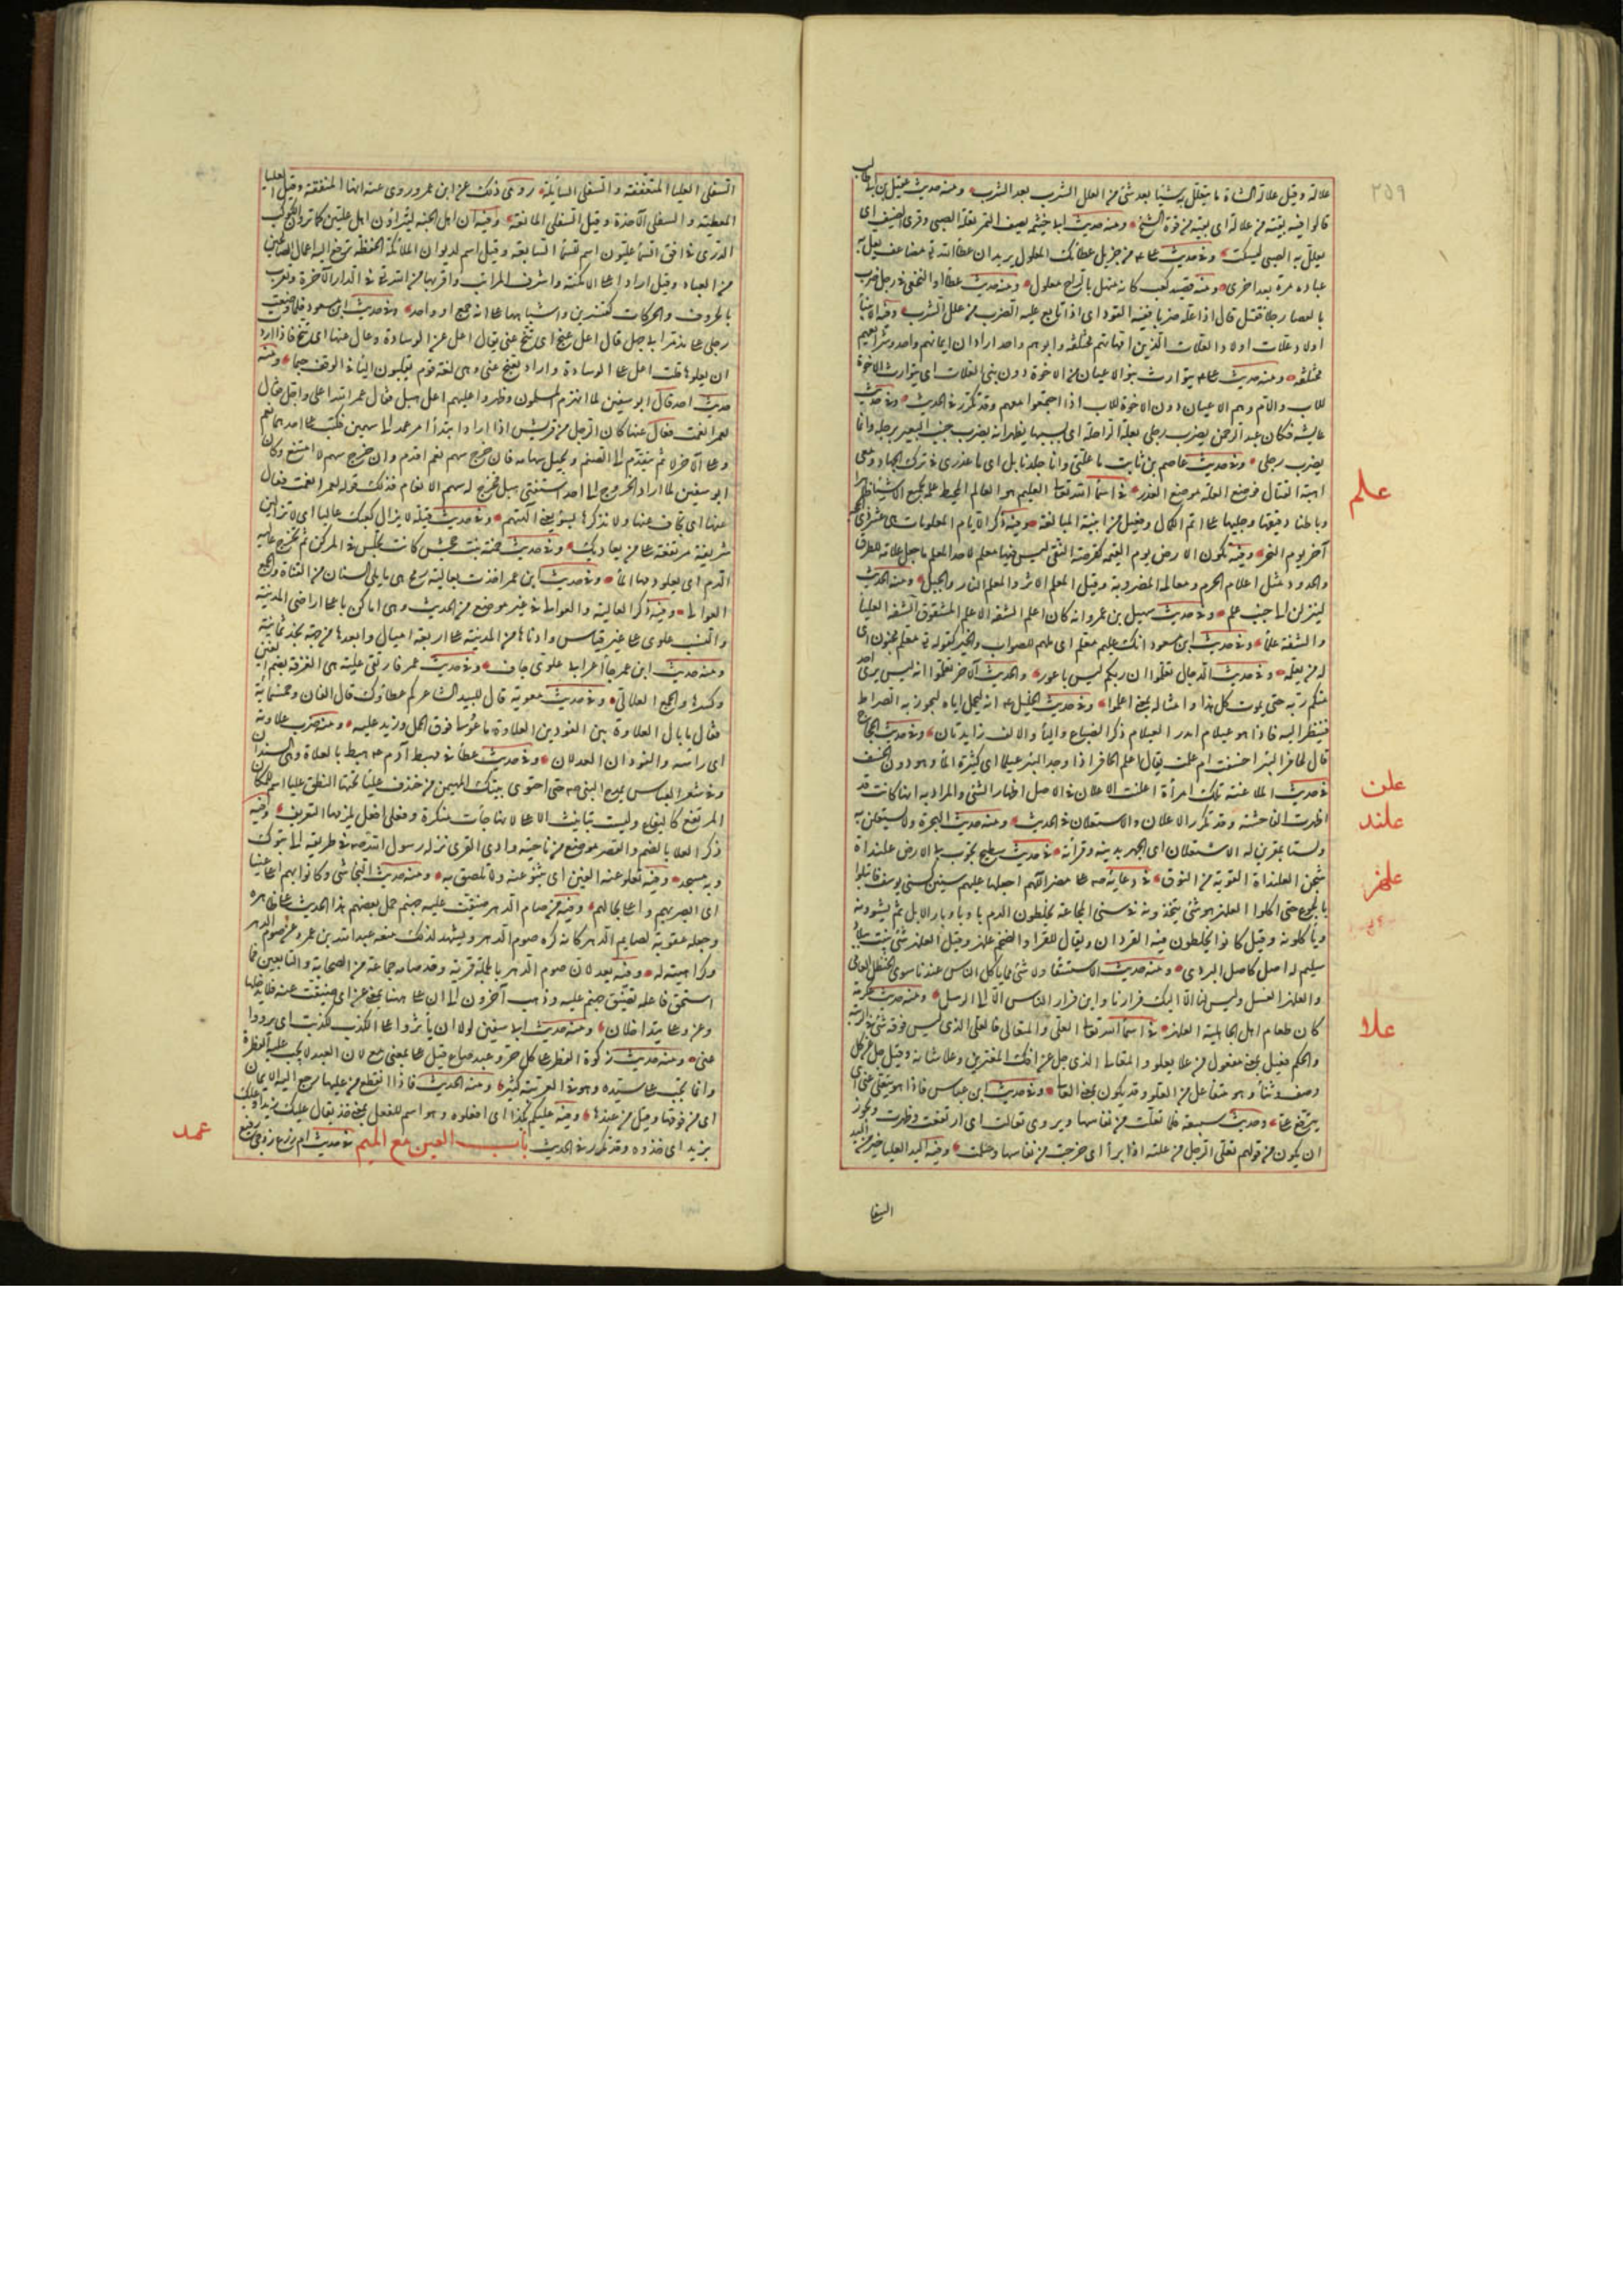 ٢٥٩
علالة وقيل علالة الشاة ما يتعلل به شيئا بعد شئ من العلل الشرب بعد الشرب ومنه حديث عقيل بن ابي طالب
قالوا فيه بقية من علالة اى بقية من قوة الشيخ ومنه حديث ابي حثمة يصف التمر تعلة الصبى وقرى الضيف اى
يعلل به الصبى ليسكت وفى حديث على من جزيل عطائك المعلول يريد ان عطا الله مضاعف يعل به
عباده مرة بعد اخرى ومنه قصيد كعب كانه منهل بالراح معلول ومنه حديث عطا او النخعى فى رجل ضرب
بالعصا رجلا فقتله قال اذا علّه ضربا ففيه القود اى اذا تابع عليه الضرب من علل الشرب وفيه الانبيا
اولاد علات اولاد العلات الذين امهاتهم مختلفة وابوهم واحد اراد ان ايمانهم واحد وشرايعهم
مختلفة ومنه حديث على يتوارث بنو الاعيان من الاخوة دون بنى العلات اى يتوارث الاخوة
للاب والام وهم الاعيان دون الاخوة للاب اذا اجتمعوا معهم وقد تكرر فى الحديث وفى حديث
عايشة فكان عبد الرحمن يضرب رجلى بعلة الراحلة اى بسببها يظهر انه يضرب جنب البعير برجله وانما
يضرب رجلى وفى حديث عاصم بن ثابت ما علتى وانا جلد نابل اى ما عذرى فى ترك الجهاد ومعى
اهبة القتال فوضع العلة موضع العذر فى اسما الله تعالى العليم هو العالم المحيط علمه بجميع الاشيا ظاهرها
علم
وباطنها دقيقها وجليلها على اتم الامكان وفعيل من ابنية المبالغة وفيه ذكر الايام المعلومات هى عشر ذى الحجة
آخر يوم النحر وفيه تكون الارض يوم القيمة كقرصة النقى ليس فيها معلم لاحد المعلم ما جعل علامة للطرق
والحدود مثل اعلام الحرم ومعالمه المضروبة وقيل المعلم الاثر والعلم المنار والجبل ومنه الحديث
لينزلن الى جنب علم وفى حديث سهيل بن عمرو انه كان اعلم الشفة الاعلم المشقوق الشفة العليا
والشفة علماء وفى حديث ابن مسعود انك غليم معلم اى ملهم للصواب والخير كقوله تعالى معلم مجنون اى
له من يعلمه وفى حديث الدجال تعلموا ان ربكم ليس باعور والحديث الآخر تعلموا انه ليس يرى احد
منكم ربه حتى يموت كل هذا وامثاله بمعنى اعلموا وفى حديث الخليل انه يحمل اباه ليجوز به الصراط
فينظر اليه فاذا هو عيلام امدر العيلام ذكر الضباع واليا والالف زايدتان وفى حديث الحجاج
قال لحافر البئر اخسفت ام اعلمت يقال اعلم الحافر اذا وجد البئر عيلما اى كثيرة الماء وهو دون الخسف
علن
فى حديث الملاعنة تلك امرأة اعلنت الاعلان فى الاصل اظهار الشئ والمراد به انها كانت قد
علند
اظهرت الفاحشة وقد تكرر الاعلان والاستعلان فى الحديث ومنه حديث الهجرة ولا يستعلن به
ولسنا بمقرين له الاستعلان اى الجهر بدينه وقرأته فى حديث سطيح تجوب بى الارض علنداة
علهز
شجن العلنداة القوية من النوق فى دعائه على مضر اللهم اجعلها عليهم سنين كسنى يوسف فابتلوا
بالجوع حتى اكلوا العلهز هو شئ يتخذونه فى سنى المجاعة يخلطون الدم باوبار الابل ثم يشوونه
وياكلونه وقيل كانوا يخلطون فيه القردان ويقال للقراد الضخم علهز وقيل العلهز شئ ينبت ببلاد
سليم له اصل كاصل البردى ومنه حديث الاستسقا ولا شئ مما ياكل الناس عندنا سوى الحنظل العامى
والعلهز الفسل وليس لنا الا اليك فرارنا واين فرار الناس الا الى الرسل ومنه حديث عكرمة
علا
كان طعام اهل الجاهلية العلهز فى اسما الله تعالى العلى والمتعالى فالعلى الذى ليس فوقه شئ فى الرتبة
والحكم فعيل بمعنى مفعول من علا يعلو والمتعالى الذى جل عن افك المفترين وعلا شانه وقيل جل عن كل
وصف وثنا وهو متفاعل من العلو وقد يكون بمعنى العالى وفى حديث ابن عباس فاذا هو يتعلى عنى اى
يترفع على وحديث سبيعة فلما تعلت من نفاسها ويروى تعالت اى ارتفعت وطهرت ويجوز
ان يكون من قولهم تعلى الرجل من علته اذا برأ اى خرجت من نفاسها وسلمت وفيه اليد العليا خير من اليد
السفلى
السفلى العليا المتعففة والسفلى السائلة روى ذلك عن ابن عمر وروى عنه انها المنفقة وقيل العليا
المعطية والسفلى الآخذة وقيل السفلى المانعة وفيه ان اهل الجنة ليتراؤن اهل عليين كما ترون الكوكب
الدرى فى افق السما عليون اسم للسما السابعة وقيل اسم لديوان الملائكة الحفظة ترفع اليه اعمال الصالحين
من العباد وقيل اراد اعلى الامكنة واشرف المراتب واقربها من الله تعالى فى الدار الآخرة ويعرب
بالحروف والحركات كقنسرين واشباهها على انه جمع او واحد وفى حديث ابن مسعود فلما وضعت
رجلى على مذمر ابي جهل قال اعل عنج اى تنح عنى يقال اعل عن الوسادة وعال عنها اى تنح فاذا اردت
ان يعلوها قلت اعل على الوسادة واراد بعنج عنى وهى لغة قوم يقلبون اليا فى الوقف جيما ومنه
حديث احد قال ابو سفين لما انهزم المسلمون وظهروا عليهم اعل هبل فقال عمر الله اعلى واجل فقال
لعمر انعمت فعال عنها كان الرجل من قريش اذا اراد ابتداء امر عمد الى سهمين فكتب على احدهما نعم
وعلى الآخر لا ثم يتقدم الى الصنم ويجيل سهامه فان خرج سهم نعم اقدم وان خرج سهم لا امتنع وكان
ابو سفين لما اراد الخروج الى احد استفتى هبل فخرج له سهم الانعام فذلك قوله لعمر انعمت فعال
عنها اى تجاف عنها ولا تذكرها بسوء يعنى آلهتهم وفى حديث قيلة لا يزال كعبك عاليا اى لا تزالين
شريفة مرتفعة على من يعاديك وفى حديث حمنة بنت جحش كانت تجلس فى المركن ثم تخرج وهى عالية
الدم اى يعلو دمها الماء وفى حديث ابن عمر اخذت بعالية رمح هى ما يلى السنان من القناة والجمع
العوالى وفيه ذكر العالية والعوالى فى غير موضع من الحديث وهى اماكن باعلى اراضى المدينة
والنسب علوى على غير قياس وادناها من المدينة على اربعة اميال وابعدها من جهة نجد ثمانية
ومنه حديث ابن عمر جاء اعرابى علوى جاف وفى حديث عمر فارتقى علية هى الغرفة بضم العين
وكسرها والجمع العلالى وفى حديث معوية قال للبيد الشاعر كم عطاؤك قال الفان وخمسمائة
فقال ما بال العلاوة بين الفودين العلاوة ما عولى فوق الحمل وزيد عليه ومنه ضرب علاوته
اى راسه والفودان العدلان وفى حديث عطا فى مهبط آدم هبط بالعلاة وهى السندان
وفى شعر العباس يمدح النبى حتى احتوى بيتك المهيمن من خندف عليا تحتها النطق عليا اسم للمكان
المرتفع كاليفاع وليست بتانيث الاعلى لانها جأت منكرة وفعلى افعل يلزمها التعريف وفيه
ذكر العلا بالضم والقصر موضع من ناحية وادى القرى نزله رسول الله فى طريقه الى تبوك
وبه مسجد وفيه تعلو عنه العين اى تنبو عنه ولا تلصق به ومنه حديث النجاشى وكانوا بهم اعلى عينا
اى ابصر بهم واعلم بحالهم وفيه من صام الدهر ضيقت عليه جهنم حمل بعضهم هذا الحديث على ظاهره
وجعله عقوبة لصايم الدهر كانه كره صوم الدهر ويشهد لذلك منعه عبد الله بن عمرو عن صوم الدهر
وكراهيته له وفيه بعد لان صوم الدهر بالجملة قربة وقد صامه جماعة من الصحابة والتابعين فما
استحق فاعله تضييق جهنم عليه وذهب آخرون الى ان على هنا بمعنى عن اى ضيقت عنه فلا يدخلها
وعن وعلى يتداخلان ومنه حديث ابي سفين لولا ان يأثروا على الكذب لكذبت اى يرووا
عنى ومنه حديث زكوة الفطر على كل حر وعبد صاع قيل على بمعنى مع لان العبد لا تجب عليه الفطرة
وانما تجب على سيده وهو فى العربية كثير ومنه الحديث فاذا انقطع من عليها رجع اليه الايمان
اى من فوقها وقيل من عندها وفيه عليكم بكذا اى افعلوه وهو اسم للفعل بمعنى خذ يقال عليك زيدا وعليك
بزيد اى خذه وقد تكرر فى الحديث باب العين مع الميم فى حديث ام زرع زوجى رفيع
عمد